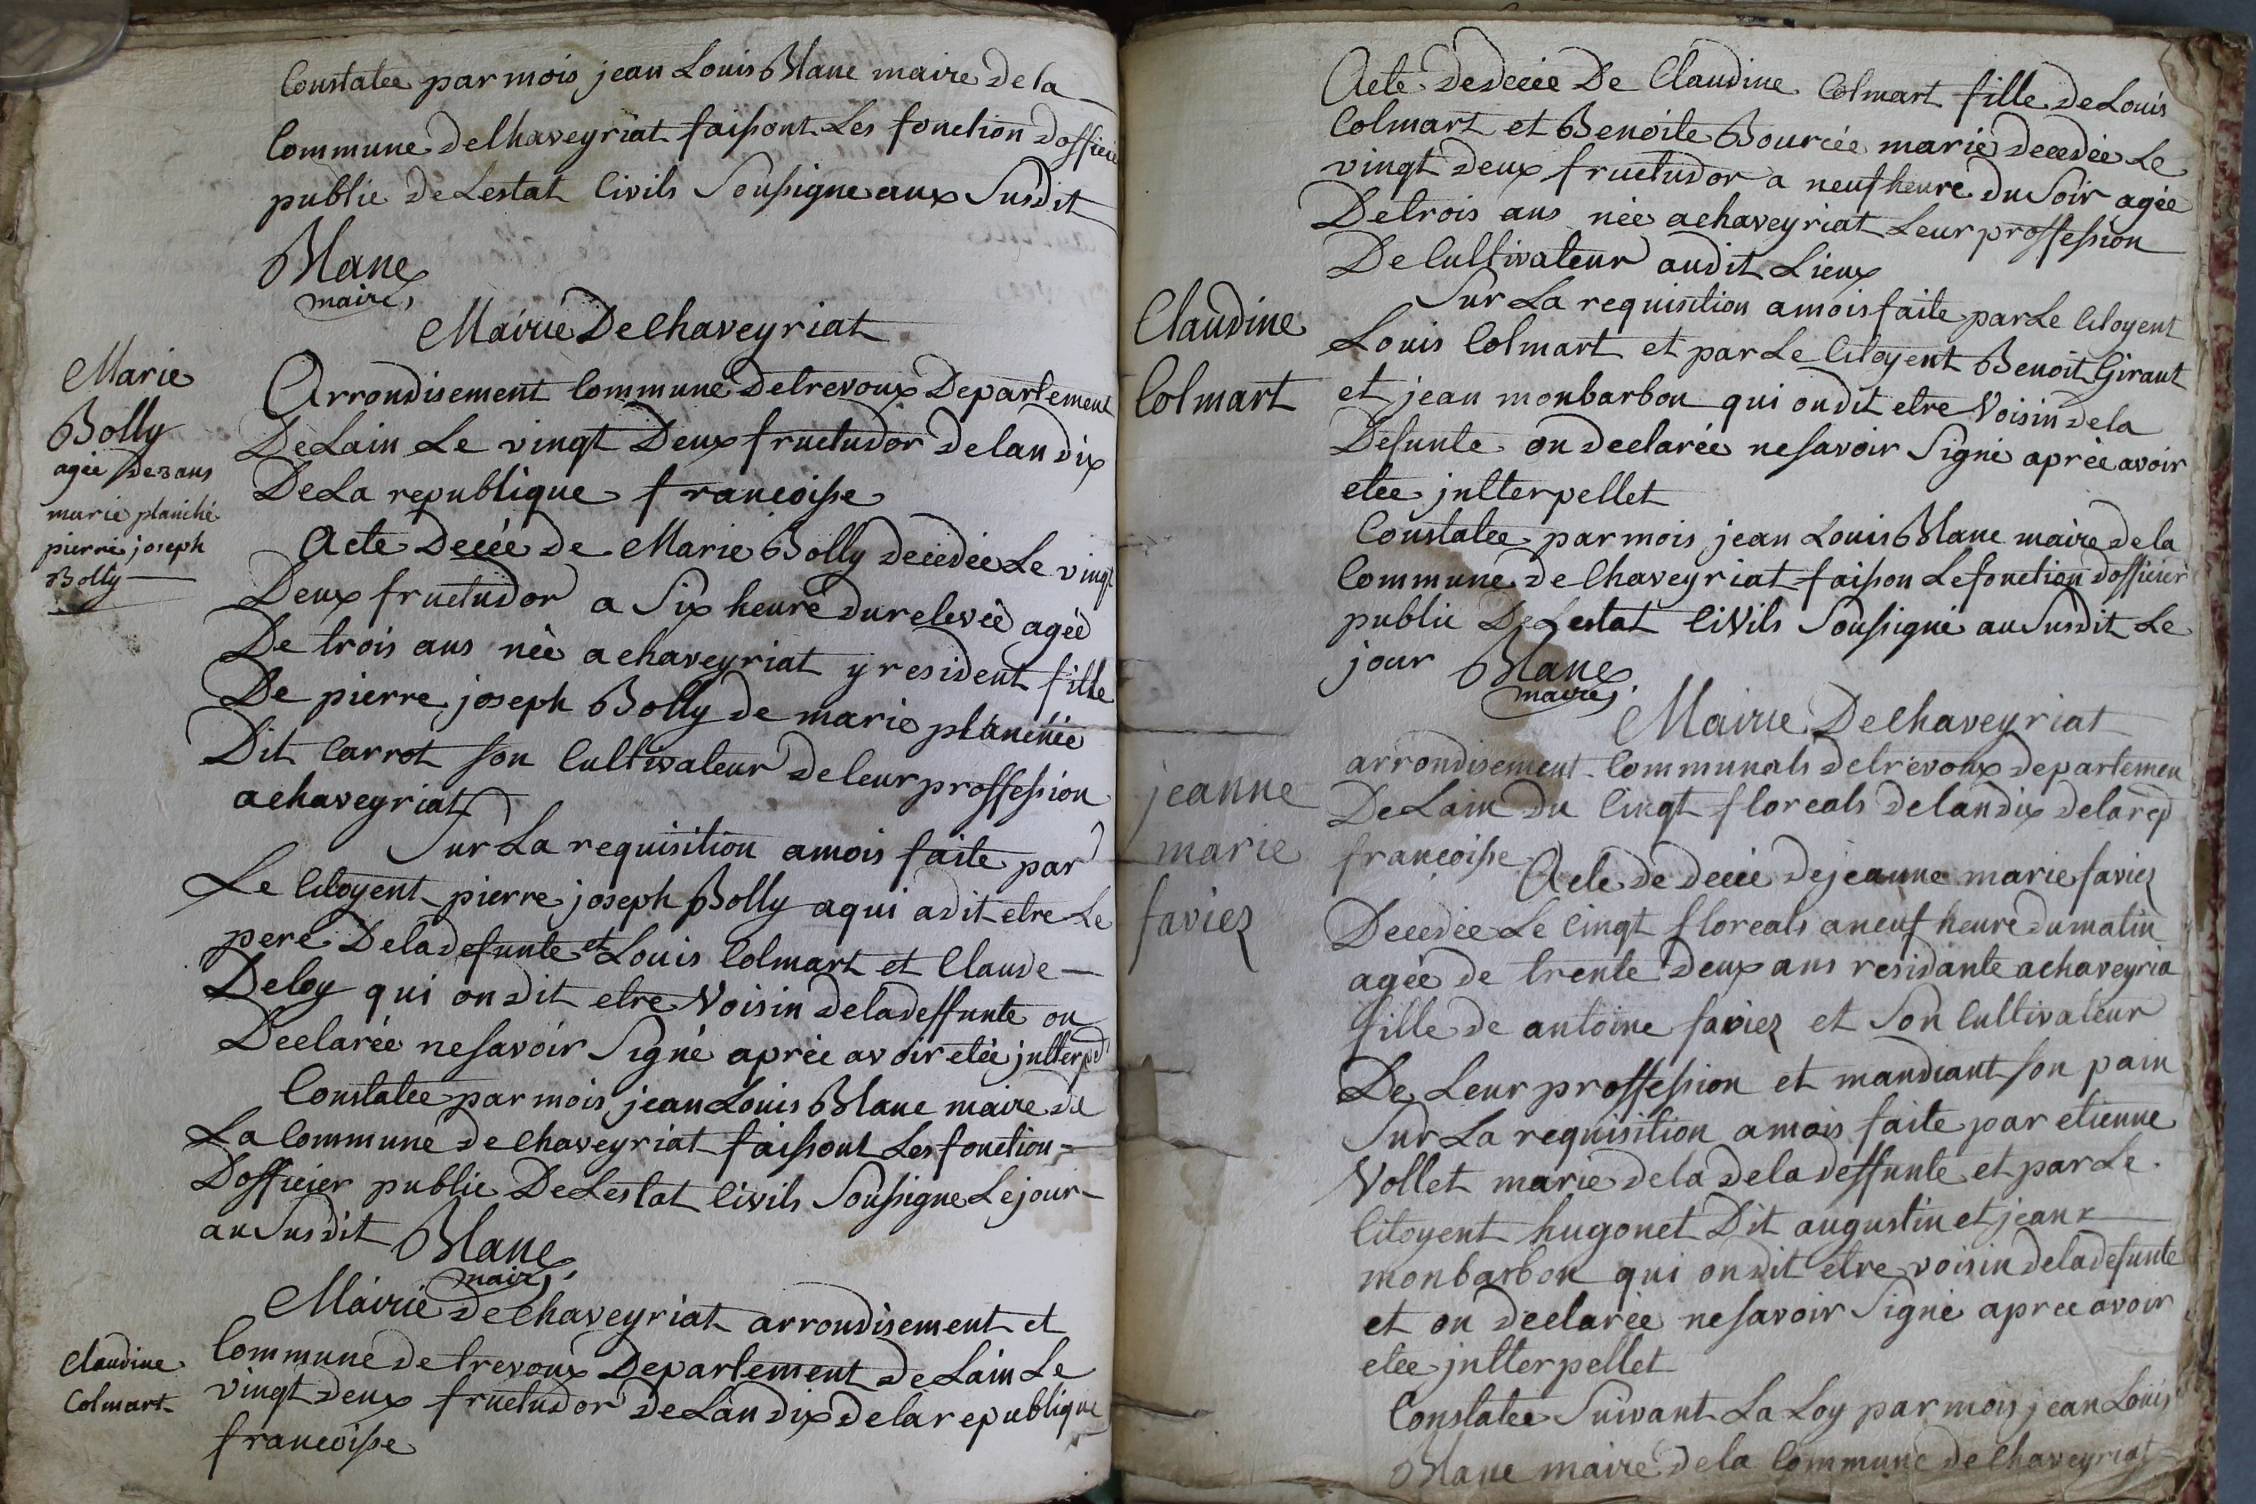 Constatee par mois jean Louis Blanc maire de la
Commune de Chaveyriat faissont Les fonction dofficie
public de Lestat Civils Soussigne aux Susdit
Blanc
maire
Mairie De Chaveyriat
Marie
Bolly
agée de 3 ans
marie planché
pierre joseph
Bolly
Arrondisement Commune De trevoux Departement
De Lain Le vingt Deux fructudor de lan dix
De La republique francoisse
Acte Deceé de Marie Bolly decedée Le vingt
Deux fructudor a Six heure du relevée agéé
De trois ans née a chaveyriat y resident fille
De pierre joseph Bolly de marie planchée
Dit Carrot son Cultivateur de leur proffession
a chaveyriat
Sur La requisition a mois faite par
Le Citoyent pierre joseph Bolly a qui a dit etre Le
pere De la defunte et Louis Colmart et Claude
Deloy qui on dit etre Voisin de la deffunte on
Declarée ne savoir Signé aprée avoir etée jntterpel
Constatee par mois jean Louis Blanc maire de
La Commune de Chaveyriat faissont Les fonction
Dofficier public De Lestat Civils Soussigne Le jour
au Susdit Blanc
maire
Mairie de Chaveyriat arrondisement et
Claudine
Colmart
Commune de trevoux Departement de Lain Le
vingt deux fructudor de Lan dix de la republique
francoisse
Acte de deceé De Claudine Colmart fille de Louis
Colmart et Benoite Bourcée marié decedée Le
vingt deux fructudor a neuf heure du Soir agée
De trois ans née a chaveyriat Leur proffession
De Cultivateur audit Lieux
Claudine
Colmart
Sur La requisition a mois faite par Le Citoyent
Louis Colmart et par Le Citoyent Benoit Giraut
et jean monbarbon qui on dit etre Voisin de la
Defunte on declarée ne savoir Signé aprée avoir
etée jntterpellet
Constatee par mois jean Louis Blanc maire de la
Commune de Chaveyriat faisson Le fonction dofficier
public De Lestat Civils Soussigné au Susdit Le
jour Blanc
maire
Mairie De Chaveyriat
jeanne
marie
faviez
arrondisement Communals de trevoux departemen
De Lain du Cinqt floreals de lan dix de la rep
francoisse
Acte de deceé de jeanne marie faviez
Decedée Le Cinqt floreals a neuf heure du matin
agée de trente deux ans residante a chaveyria
fille de antoine faviez et Son Cultivateur
De Leur proffession et mandiant son pain
Sur La requisition a mois faite par etienne
Vollet marié de la de la deffunte et par Le
Citoyent hugonet Dit augustin et jean
monbarbon qui on dit etre voisin de la defunte
et on declarée ne savoir Signé aprée avoir
etée jntterpellet
Constatee Suivant La Loy par mois jean Louis
Blanc maire de la Commune de Chaveyriat